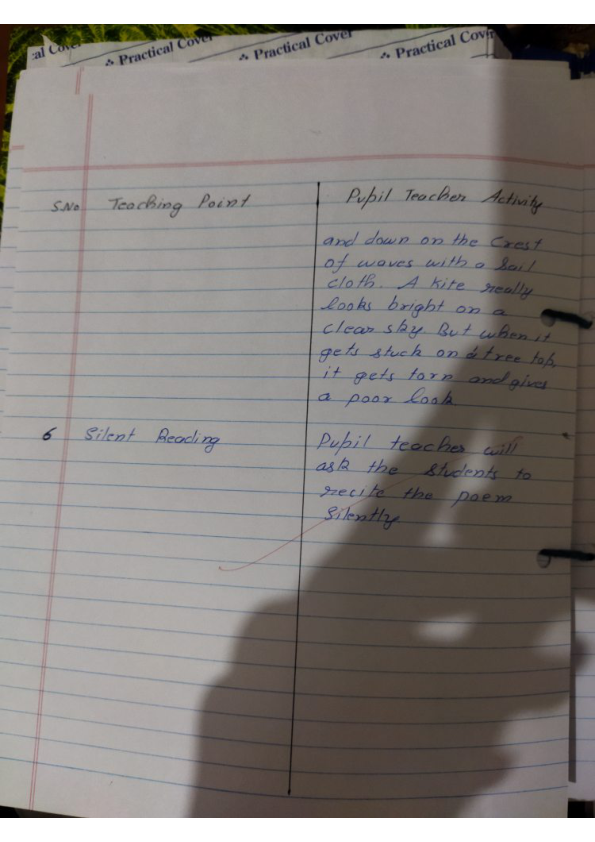 al Cover
❖ Practical Cover
❖ Practical Cover
❖ Practical Cover
S.No. Teaching Point Pupil Teacher Activity
and down on the Crest
of waves with a Sail
cloth. A kite really
looks bright on a
clear sky. But when it
gets stuck on a tree top,
it gets torn and gives
a poor look
6 Silent Reading Pupil teacher will
ask the students to
recite the poem
Silently